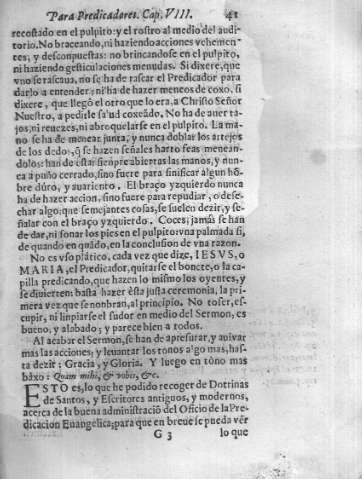 Para Predicadores. Cap. VIII. 41
recostado en el pulpito: y el rostro al medio del audi-
torio. No braceando, ni haziendo acciones vehemen-
tes, y descompuestas: no brincandose en el pulpito,
ni haziendo gesticulaciones menudas. Si dixere, que
vno se rascaua, no se ha de rascar el Predicador para
darlo a entender: ni ha de hazer meneos de coxo, si
dixere, que llegò el otro que lo era, a Christo Señor
Nuestro, a pedirle salud coxeãdo. No ha de auer ta-
jos, ni reuezes, ni abroquelarse en el pulpito. La ma-
no se ha de menear junta, y nunca doblar los artejos
de los dedos, q̃ se hazen señales harto feas menean-
dolos: han de estar siempre abiertas las manos, y nun-
ca a puño cerrado, sino fuere para sinificar algun hõ-
bre dúro, y auariento. El braço yzquierdo nunca
ha de hazer accion, sino fuere para repudiar, o dese-
char algo: que semejantes cosas, se suelen dezir, y se-
ñalar con el braço yzquierdo. Coces, jamàs se han
de dar, ni sonar los pies en el pulpito: vna palmada si,
de quando en quãdo, en la conclusion de vna razon.
No es vso platico, cada vez que dize, IESVS, o
MARIA, el Predicador, quitarse el bonete, o la ca-
pilla predicando, que hazen lo mismo los oyentes, y
se diuierten: basta hazer esta justa ceremonia, la pri-
mera vez que se nonbran, al principio. No toser, es-
cupir, ni linpiarse el sudor en medio del Sermon, es
bueno, y alabado; y parece bien a todos.
Al acabar el Sermon, se han de apresurar, y auivar
mas las acciones; y leuantar los tonos algo mas, has-
ta dezir: Gracia, y Gloria. Y luego en tóno mas
báxo: Quam mihi, & vobis, &c.
ESTO es, lo que he podido recoger de Dotrinas
de Santos, y Escritores antiguos, y modernos,
acerca de la buena administraciõ del Oficio de la Pre-
dicacion Euangelica; para que en breue se pueda vér
G 3 lo que